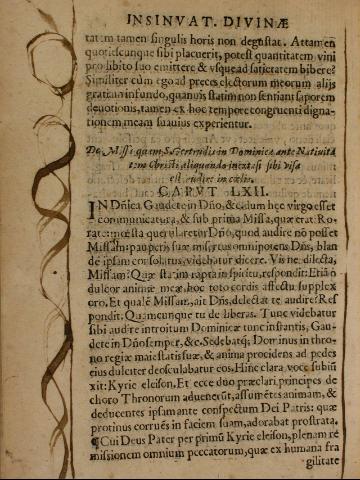 INSINVAT. DIVINÆ
tatem tamen singulis horis non degustat. Attamen
quotiescunque sibi placuerit, potest quantitatem vini
pro libito suo emittere & vsque ad satietatem bibere?
Similiter cum ego ad preces electorum meorum alijs
gratiam infundo, quamuis statim non sentiant saporem
deuotionis, tamen ex hoc tempore congruenti digna-
tionem meam suauius experientur.
De Missa quam S. Gertrudis in Dominica ante Natiuita
tem Christi aliquando in extasi sibi visa
est audire in cœlis.
CAPVT LXII.
IN Dñica Gaudete in Dño, & cùdum hęc virgo esset
communicatura, & sub prima Missa, quæ erat: Ro-
rate: mœsta quereretur Dño, quod audire nõ posset
Missam: pauperis suæ misertus omnipotens Dñs, blan
dè ipsam consolatus, videbatur dicere. Vis ne dilecta,
Missam? Quæ statim rapta in spiritu, respondit: Etiã ô
dulcor animæ meæ, hoc totò cordis affectu supplex
oro. Et qualẽ Missam, ait Dñs, delectat te audire? Res
pondit. Quamcunque tu de liberas. Tunc videbatur
sibi audire introitum Dominicæ tunc instantis, Gau-
dete in Dño semper, &c. Sedebatq; Dominus in thro-
no regiæ maiestatis suæ, & anima procidens ad pedes
eius dulciter deosculabatur eos. Hinc clara voce subiũ
xit: Kyrie eleison. Et ecce duo præclari principes de
choro Thronorum aduenerũt, assumẽtes animam, &
deducentes ipsam ante conspectum Dei Patris: quæ
protinus corruẽs in faciem suam, adorabat prostrata.
¶Cui Deus Pater per primũ Kyrie eleison, plenam re
missionem omnium peccatorum, quæ ex humana fra
gilitate